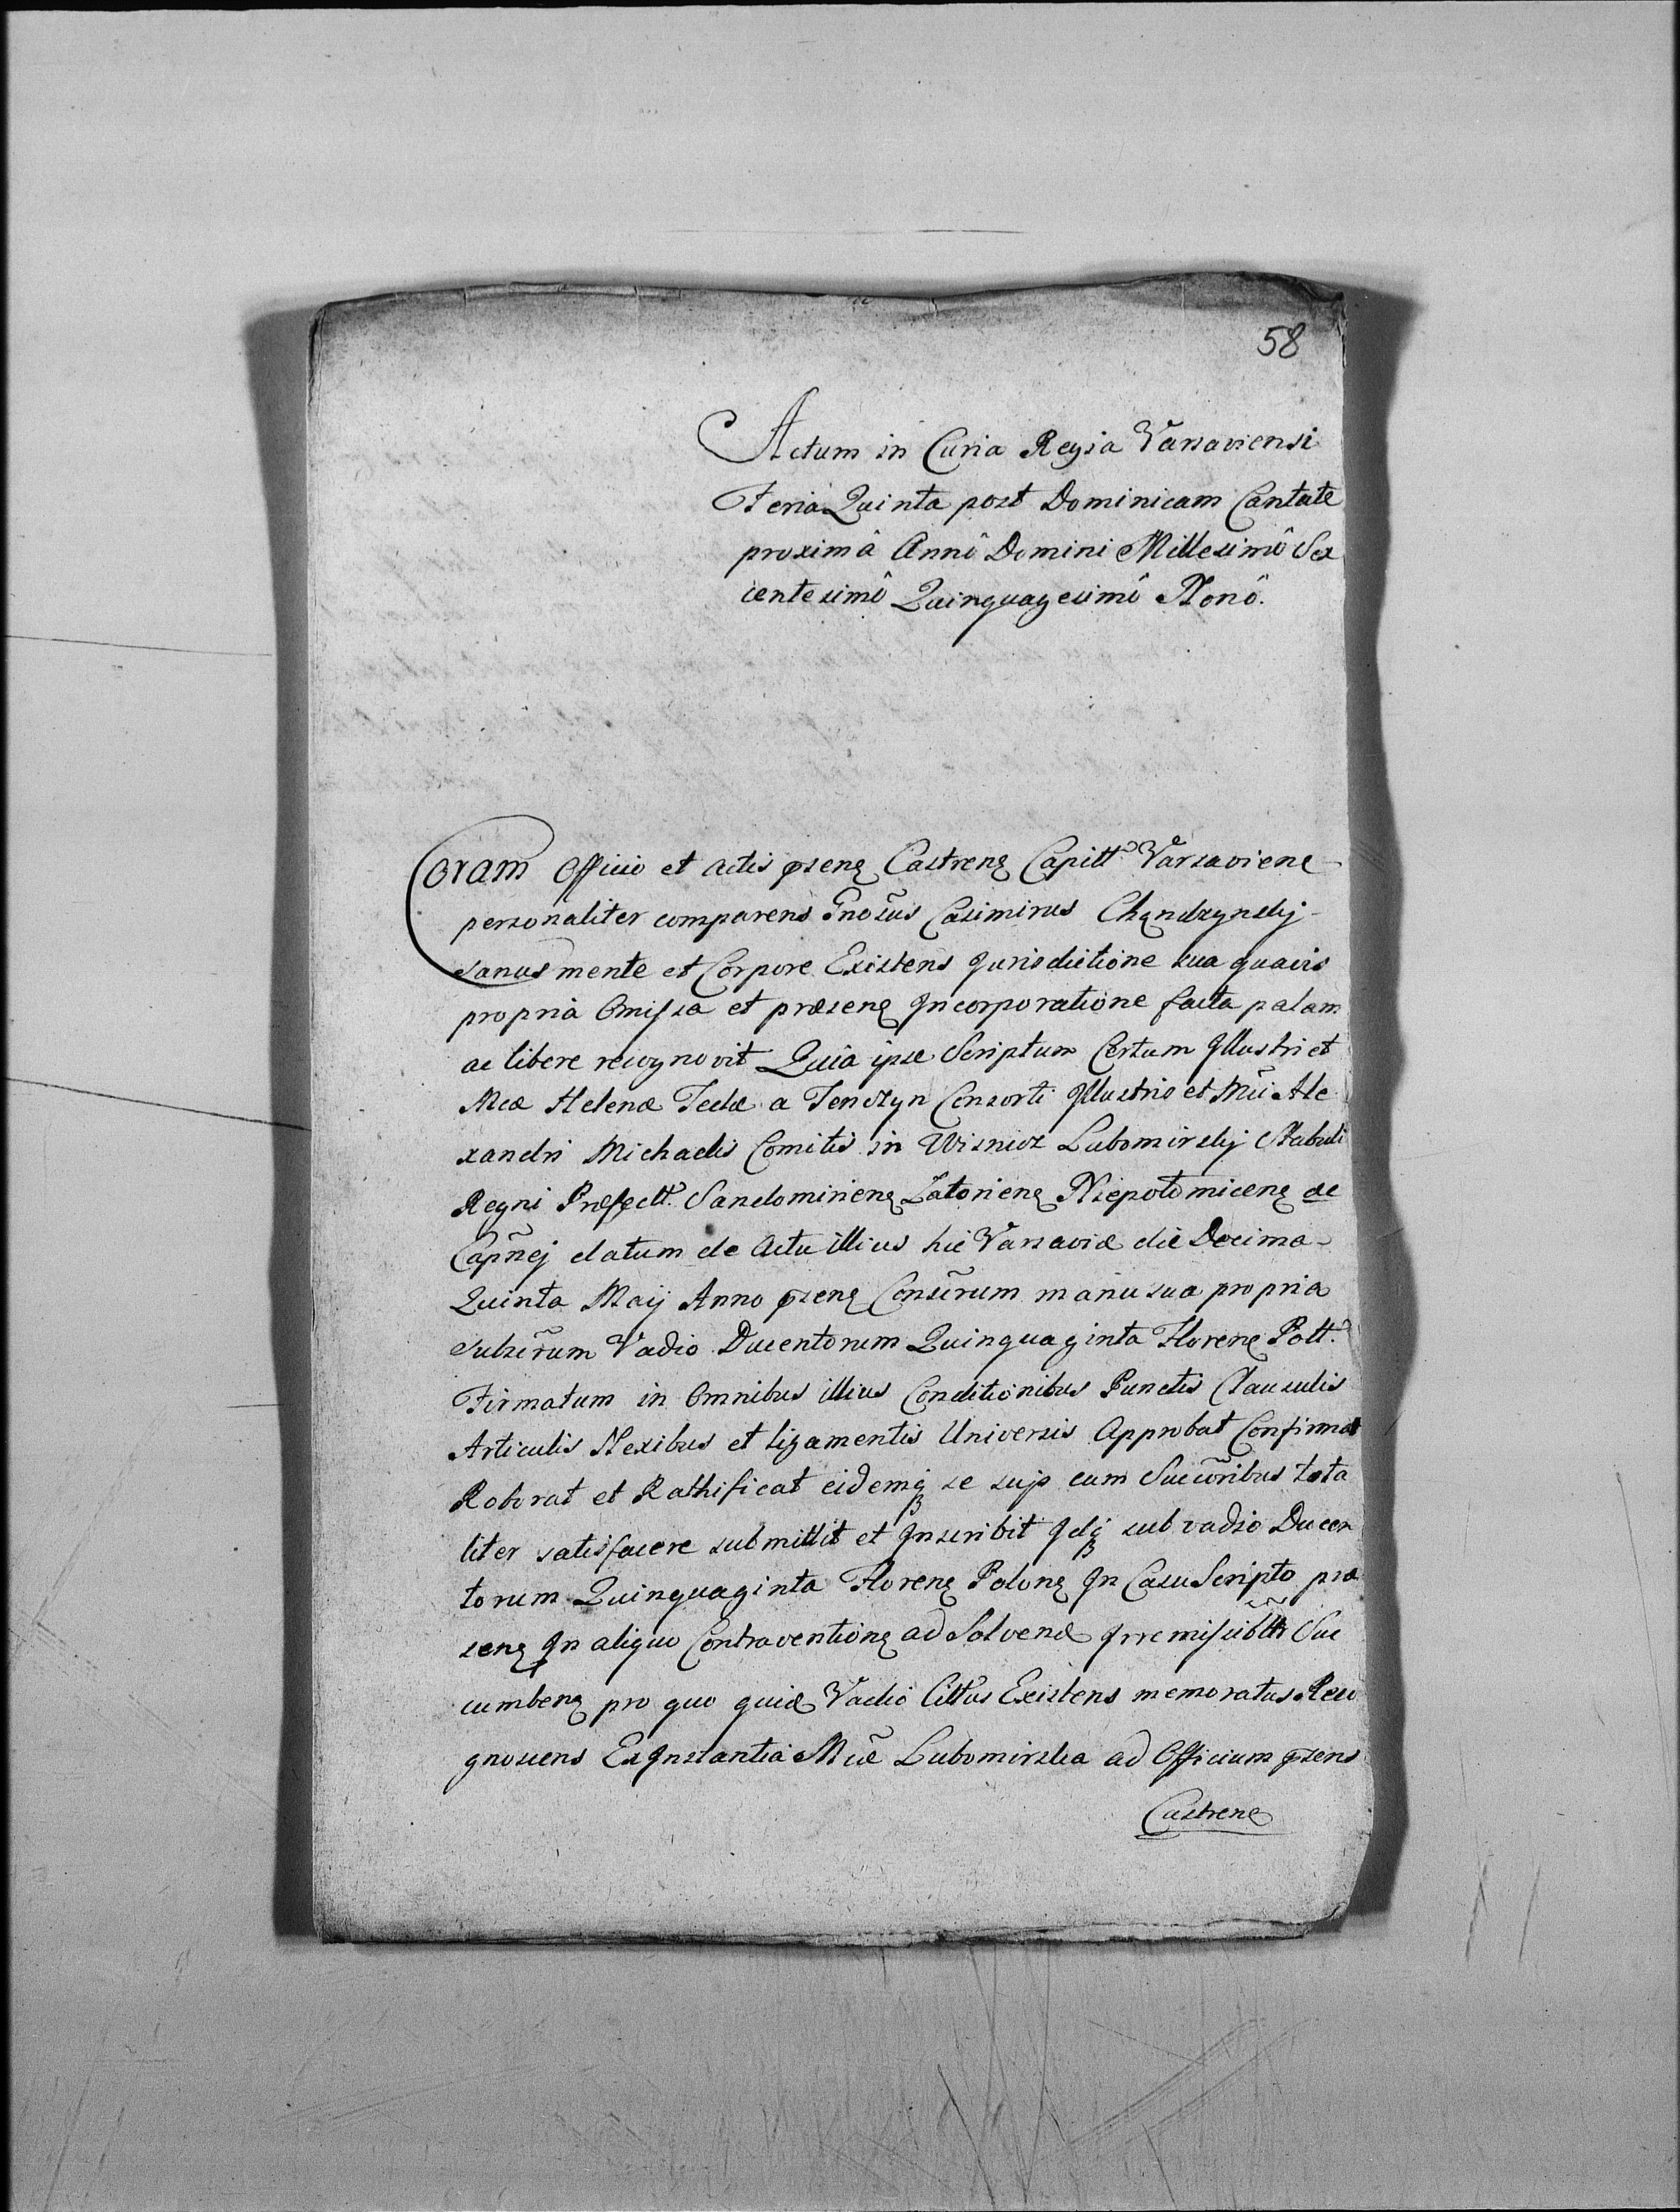 58
Actum in Curia Regia Varsaviensi
Feria Quinta post Dominicam Cantate
proximâ Annô Domini Millesimô Sex
centesimô Quinquagesimô Nonô.
Coram Officio et actis pseng Castreng Capitt Varsaviene
personaliter comparens Gnosus Casimirus Chądzynskij
sanus mente et Corpore Existens Jurisdictione sua quavis
propria Omissa et præseng Incorporatione facta palam
ac libere recognovit Quia ipse Scriptum Certum Illustri et
Mcæ Helenæ Teclæ a Tenczyn Consorti Illustris et Mci Ale
xandri Michaelis Comitis in Wisnicz Lubomirskij Stabuli
Regni Præfectt. Sandomirieng Zatorieng Niepolomiceng &c
Capnej datum de Actu illius hic Varsaviæ die Decima
Quinta Maij Anno pseng Conscrum manu sua propria
subscrum Vadio Ducentorum Quinquaginta Floreng Poll.
Firmatum in Omnibus illius Conditionibus Punctis Clausulis
Articulis Nexibus et Ligamentis Universis Approbat Confirmat
Roborat et Rathificat eidemq se suis cum Succoribus tota
liter satisfacere submittit et Inscribit Idq sub vadio Ducen
torum Quinquaginta Floreng Polong In Casu Scripto præ
seng In aliquo Contraventiong ad Solvend Irremissibltr Suc
cumbeng pro quo quid Vadio Cittus Existens memoratus Reco
gnoscens Ex Instantia Mcæ Lubomirska ad Officium psens
Castrene